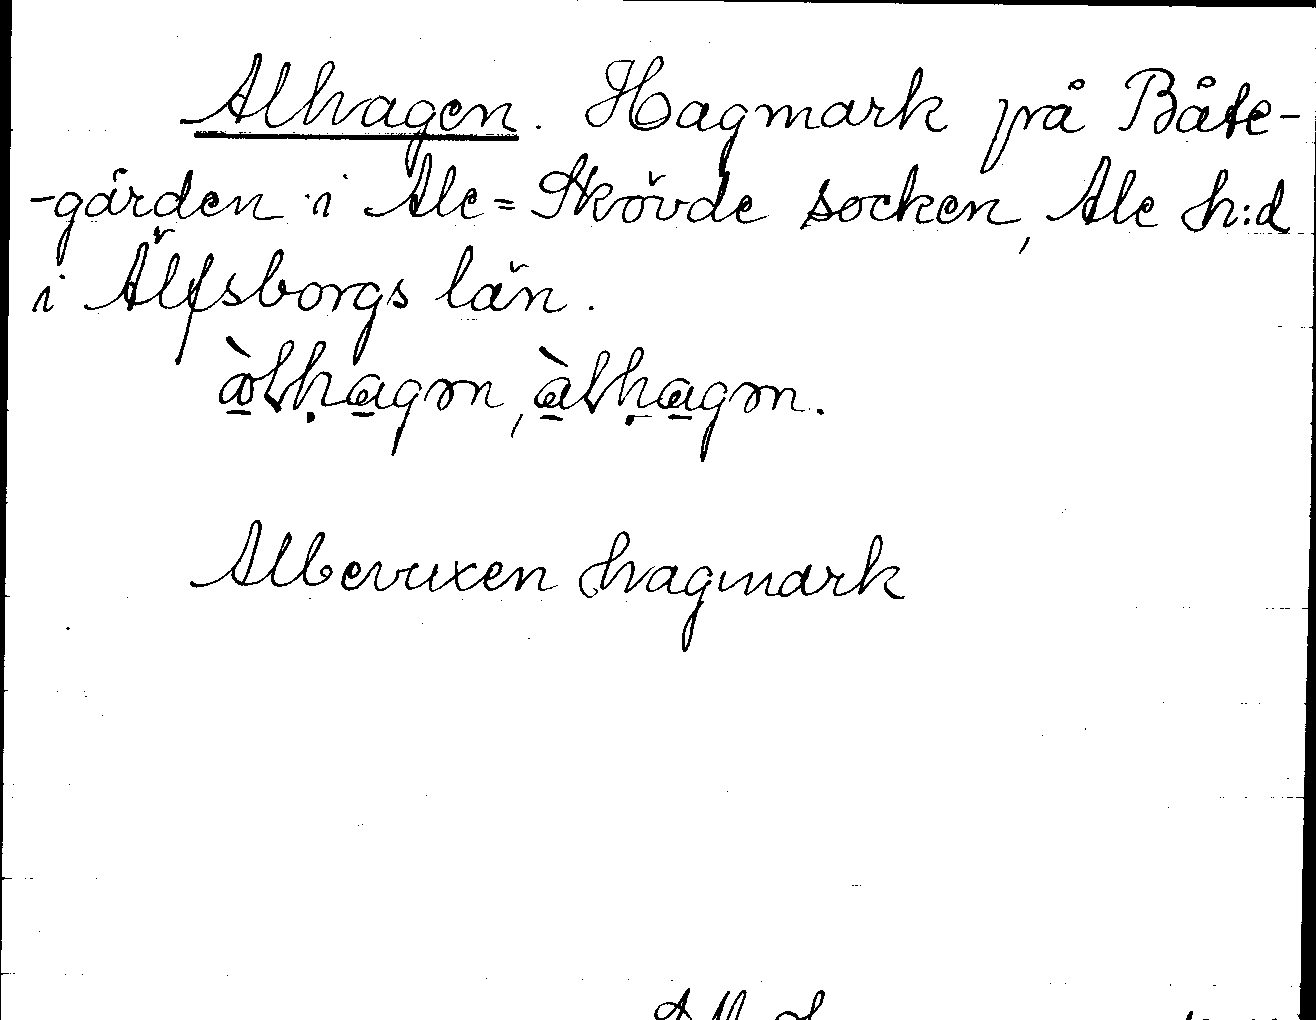 Alhagen. Hagmark på Båte-
-gården i Ale=Skövde socken, Ale h:d
i Älfsborgs län.
àlhagən, àlhagən.
Albevuxen hagmark